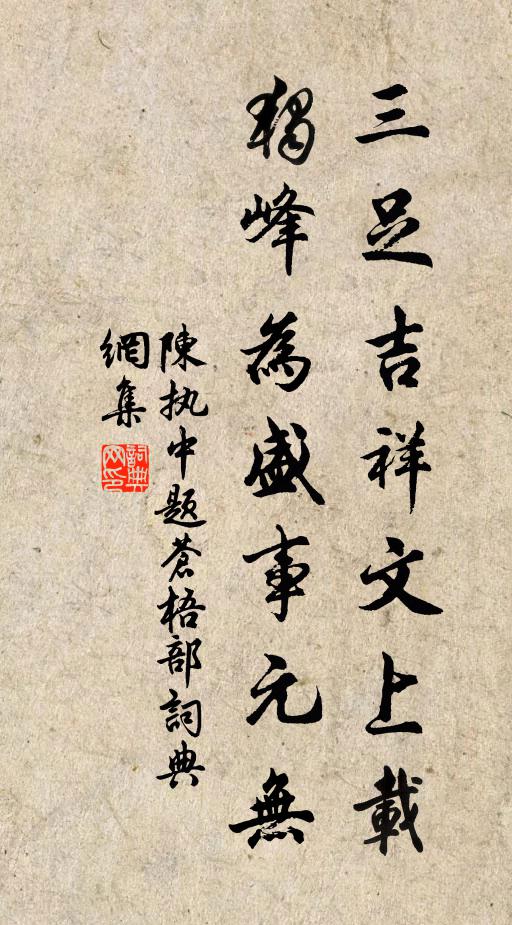 三足吉祥文上載
獨峰為盛事元無
陳执中題蒼梧部詞典
網集
詞典网印